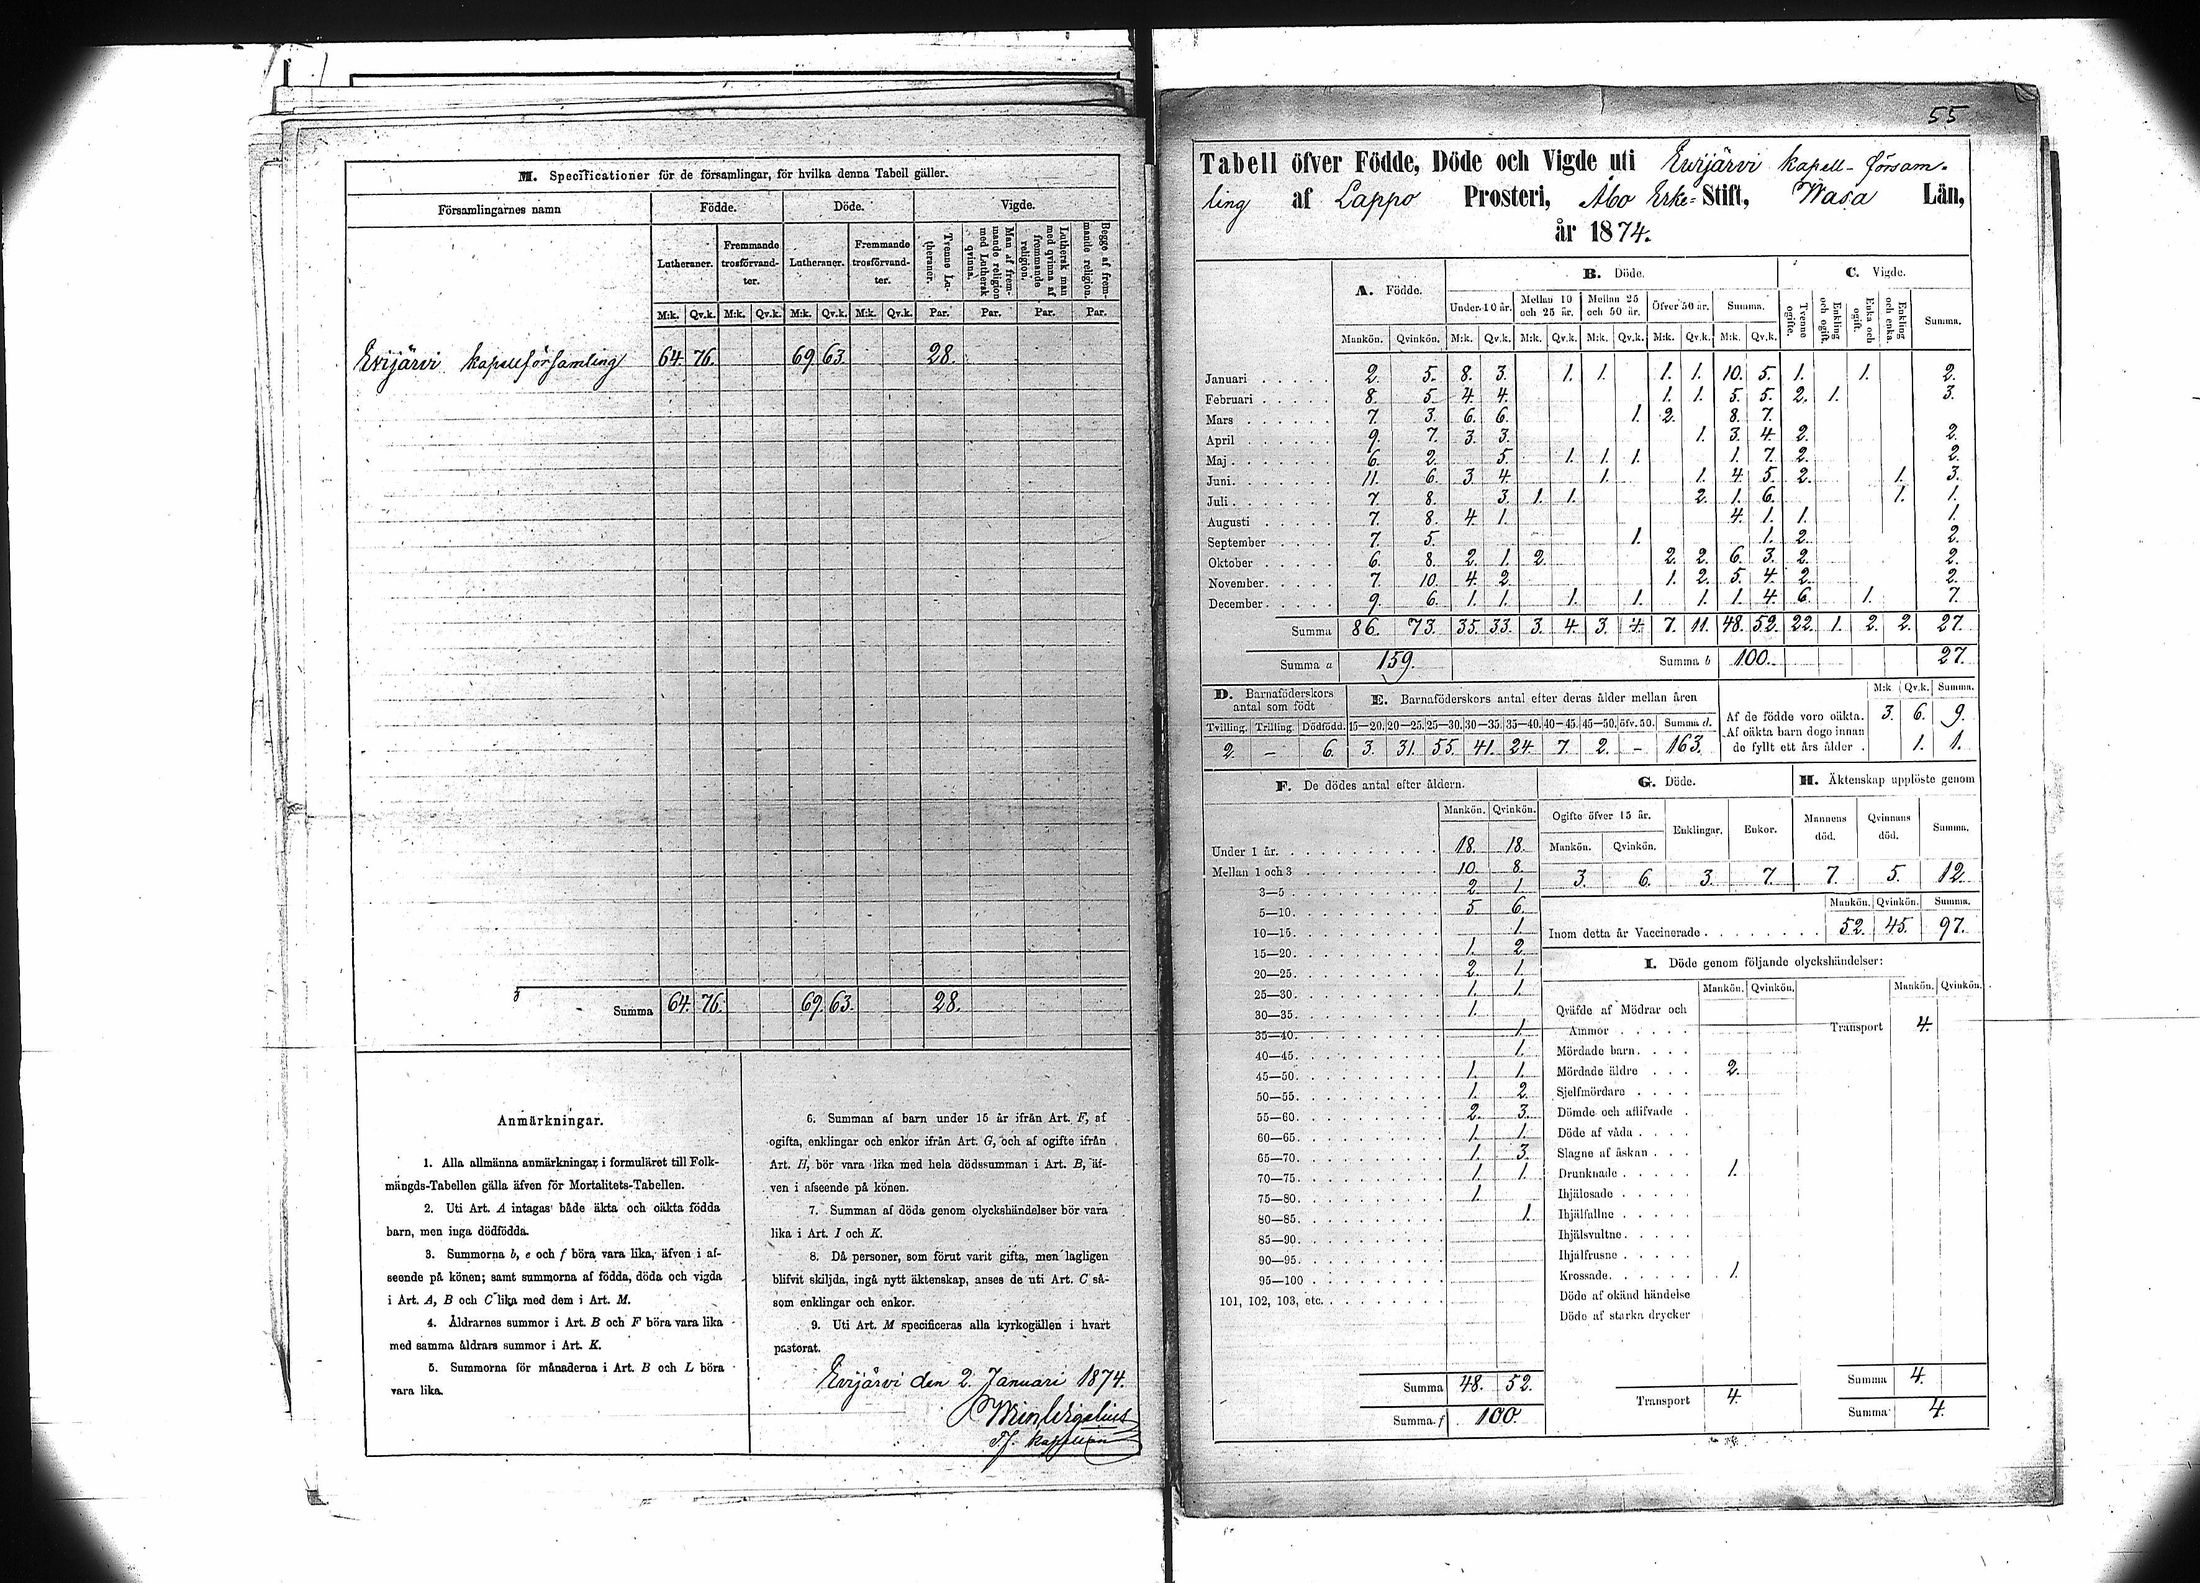 M. Specificationer för de församlingar, för hvilka denna Tabell gäller.
Församlingarnes namn Födde. Döde. Vigde.
Lutheraner. Fremmande trosförvandter. Lutheraner. Fremmande trosförvandter. Tvenne Lutheraner. Man af fremmande religion med Luthersk qvinna. Luthersk man med qvinna af fremmande religion. Begge af fremmande religion.
M:k. Qv.k. M:k. Qv.k. M:k. Qv.k. M:k. Qv.k. Par. Par. Par. Par.
Evijärvi kapellförsamling 64. 76. 69. 63. 28.
Summa 64. 76. 69. 63. 28.
Anmärkningar.
1. Alla allmänna anmärkningar i formuläret till Folk-
mängds-Tabellen gälla äfven för Mortalitets-Tabellen.
2. Uti Art. A intagas både äkta och oäkta födda
barn, men inga dödfödda.
3. Summorna b, e och f böra vara lika, äfven i af-
seende på könen; samt summorna af födda, döda och vigda
i Art. A, B och C lika med dem i Art. M.
4. Åldrarnes summor i Art. B och F böra vara lika
med samma åldrars summor i Art. K.
5. Summorna för månaderna i Art. B och L böra
vara lika.
6. Summan af barn under 15 år ifrån Art. F, af
ogifta, enklingar och enkor ifrån Art. G, och af ogifte ifrån
Art. H, bör vara lika med hela dödssumman i Art. B, äf-
ven i afseende på könen.
7. Summan af döda genom olyckshändelser bör vara
lika i Art. I och K.
8. Då personer, som förut varit gifta, men lagligen
blifvit skiljda, ingå nytt äktenskap, anses de uti Art. C så-
som enklingar och enkor.
9. Uti Art. M specificeras alla kyrkogällen i hvart
pastorat.
Evijärvi den 2. Januari 1874.
Tf. kapellan
55
Tabell öfver Födde, Döde och Vigde uti Evijärvi kapell-församling
ling af Lappo Prosteri, Åbo Erke-Stift, Wasa Län,
år 1874.
A. Födde. B. Döde. C. Vigde.
Under 10 år. Mellan 10 och 25 år. Mellan 25 och 50 år. Öfver 50 år. Summa. Tvenne ogifte. Enkling och ogift. Enka och ogift. Enkling och enka. Summa.
Mankön. Qvinkön. M:k. Qv.k. M:k. Qv.k. M:k. Qv.k. M:k. Qv.k. M:k. Qv.k.
Januari 2. 5. 8. 3. 1. 1. 1. 1. 10. 5. 1. 1. 2.
Februari 8. 5. 4. 4. 1. 1. 5. 5. 2. 1. 3.
Mars 7. 3. 6. 6. 1. 2. 8. 7.
April 9. 7. 3. 3. 1. 3. 4. 2. 2.
Maj 6. 2. 5. 1. 1. 1. 1. 7. 2. 2.
Juni 11. 6. 3. 4. 1. 1. 4. 5. 2. 1. 3.
Juli 7. 8. 3. 1. 1. 2. 1. 6. 1. 1.
Augusti 7. 8. 4. 1. 4. 1. 1. 1.
September 7. 5. 1. 1. 2. 2.
Oktober 6. 8. 2. 1. 2. 2. 2. 6. 3. 2. 2.
November 7. 10. 4. 2. 1. 2. 5. 4. 2. 2.
December 9. 6. 1. 1. 1. 1. 1. 1. 4. 6. 1. 7.
Summa 86. 73. 35. 33. 3. 4. 3. 4. 7. 11. 48. 52. 22. 1. 2. 2. 27.
Summa a 159. Summa b 100. 27.
D. Barnaföderskors antal som födt
E. Barnaföderskors antal efter deras ålder mellan åren
M:k Qv.k. Summa.
Tvilling. Trilling Dödfödd. 15—20. 20—25. 25—30. 30—35. 35—40. 40—45. 45—50. öfv. 50. Summa d.
2. – 6. 3. 31. 55. 41. 24. 7. 2. – 163.
Af de födde voro oäkta. 3. 6. 9.
Af oäkta barn dogo innan
de fyllt ett års ålder . 1. 1.
F. De dödes antal efter åldern.
Mankön. Qvinkön.
Under 1 år. 18. 18.
Mellan 1 och 3 10. 8.
3—5 2. 1.
5—10. 5. 6.
10—15. 1.
15—20. 1. 2.
20—25. 2. 1.
25—30. 1. 1.
30—35. 1.
35—40. 1.
40—45. 1.
45—50. 1. 1.
50—55. 1. 2.
55—60. 2. 3.
60—65. 1. 1.
65—70. 1. 3.
70—75. 1. 1.
75—80. 1.
80—85. 1.
85—90.
90—95.
95—100
101, 102, 103, etc.
Summa 48. 52.
Summa f 100.
G. Döde.
Ogifte öfver 15 år. Enklingar. Enkor.
Mankön. Qvinkön.
3. 6. 3. 7.
H. Äktenskap upplöste genom
Mannens död. Qvinnans död. Summa.
7. 5. 12.
Mankön. Qvinkön. Summa.
Inom detta år Vaccinerade 52. 45. 97.
I. Döde genom följande olyckshändelser:
Mankön. Qvinkön. Mankön. Qvinkön.
Qväfde af Mödrar och
Ammor
Transport 4.
Mördade barn
Mördade äldre 2.
Sjelfmördare
Dömde och aflifvade
Döde af våda
Slagne af åskan
Drunknade 1.
Ihjälosade
Ihjälfallne
Ihjälsvultne
Ihjälfrusne
Krossade 1.
Döde af okänd händelse
Döde af starka drycker
Transport 4.
Summa 4.
Summa 4.